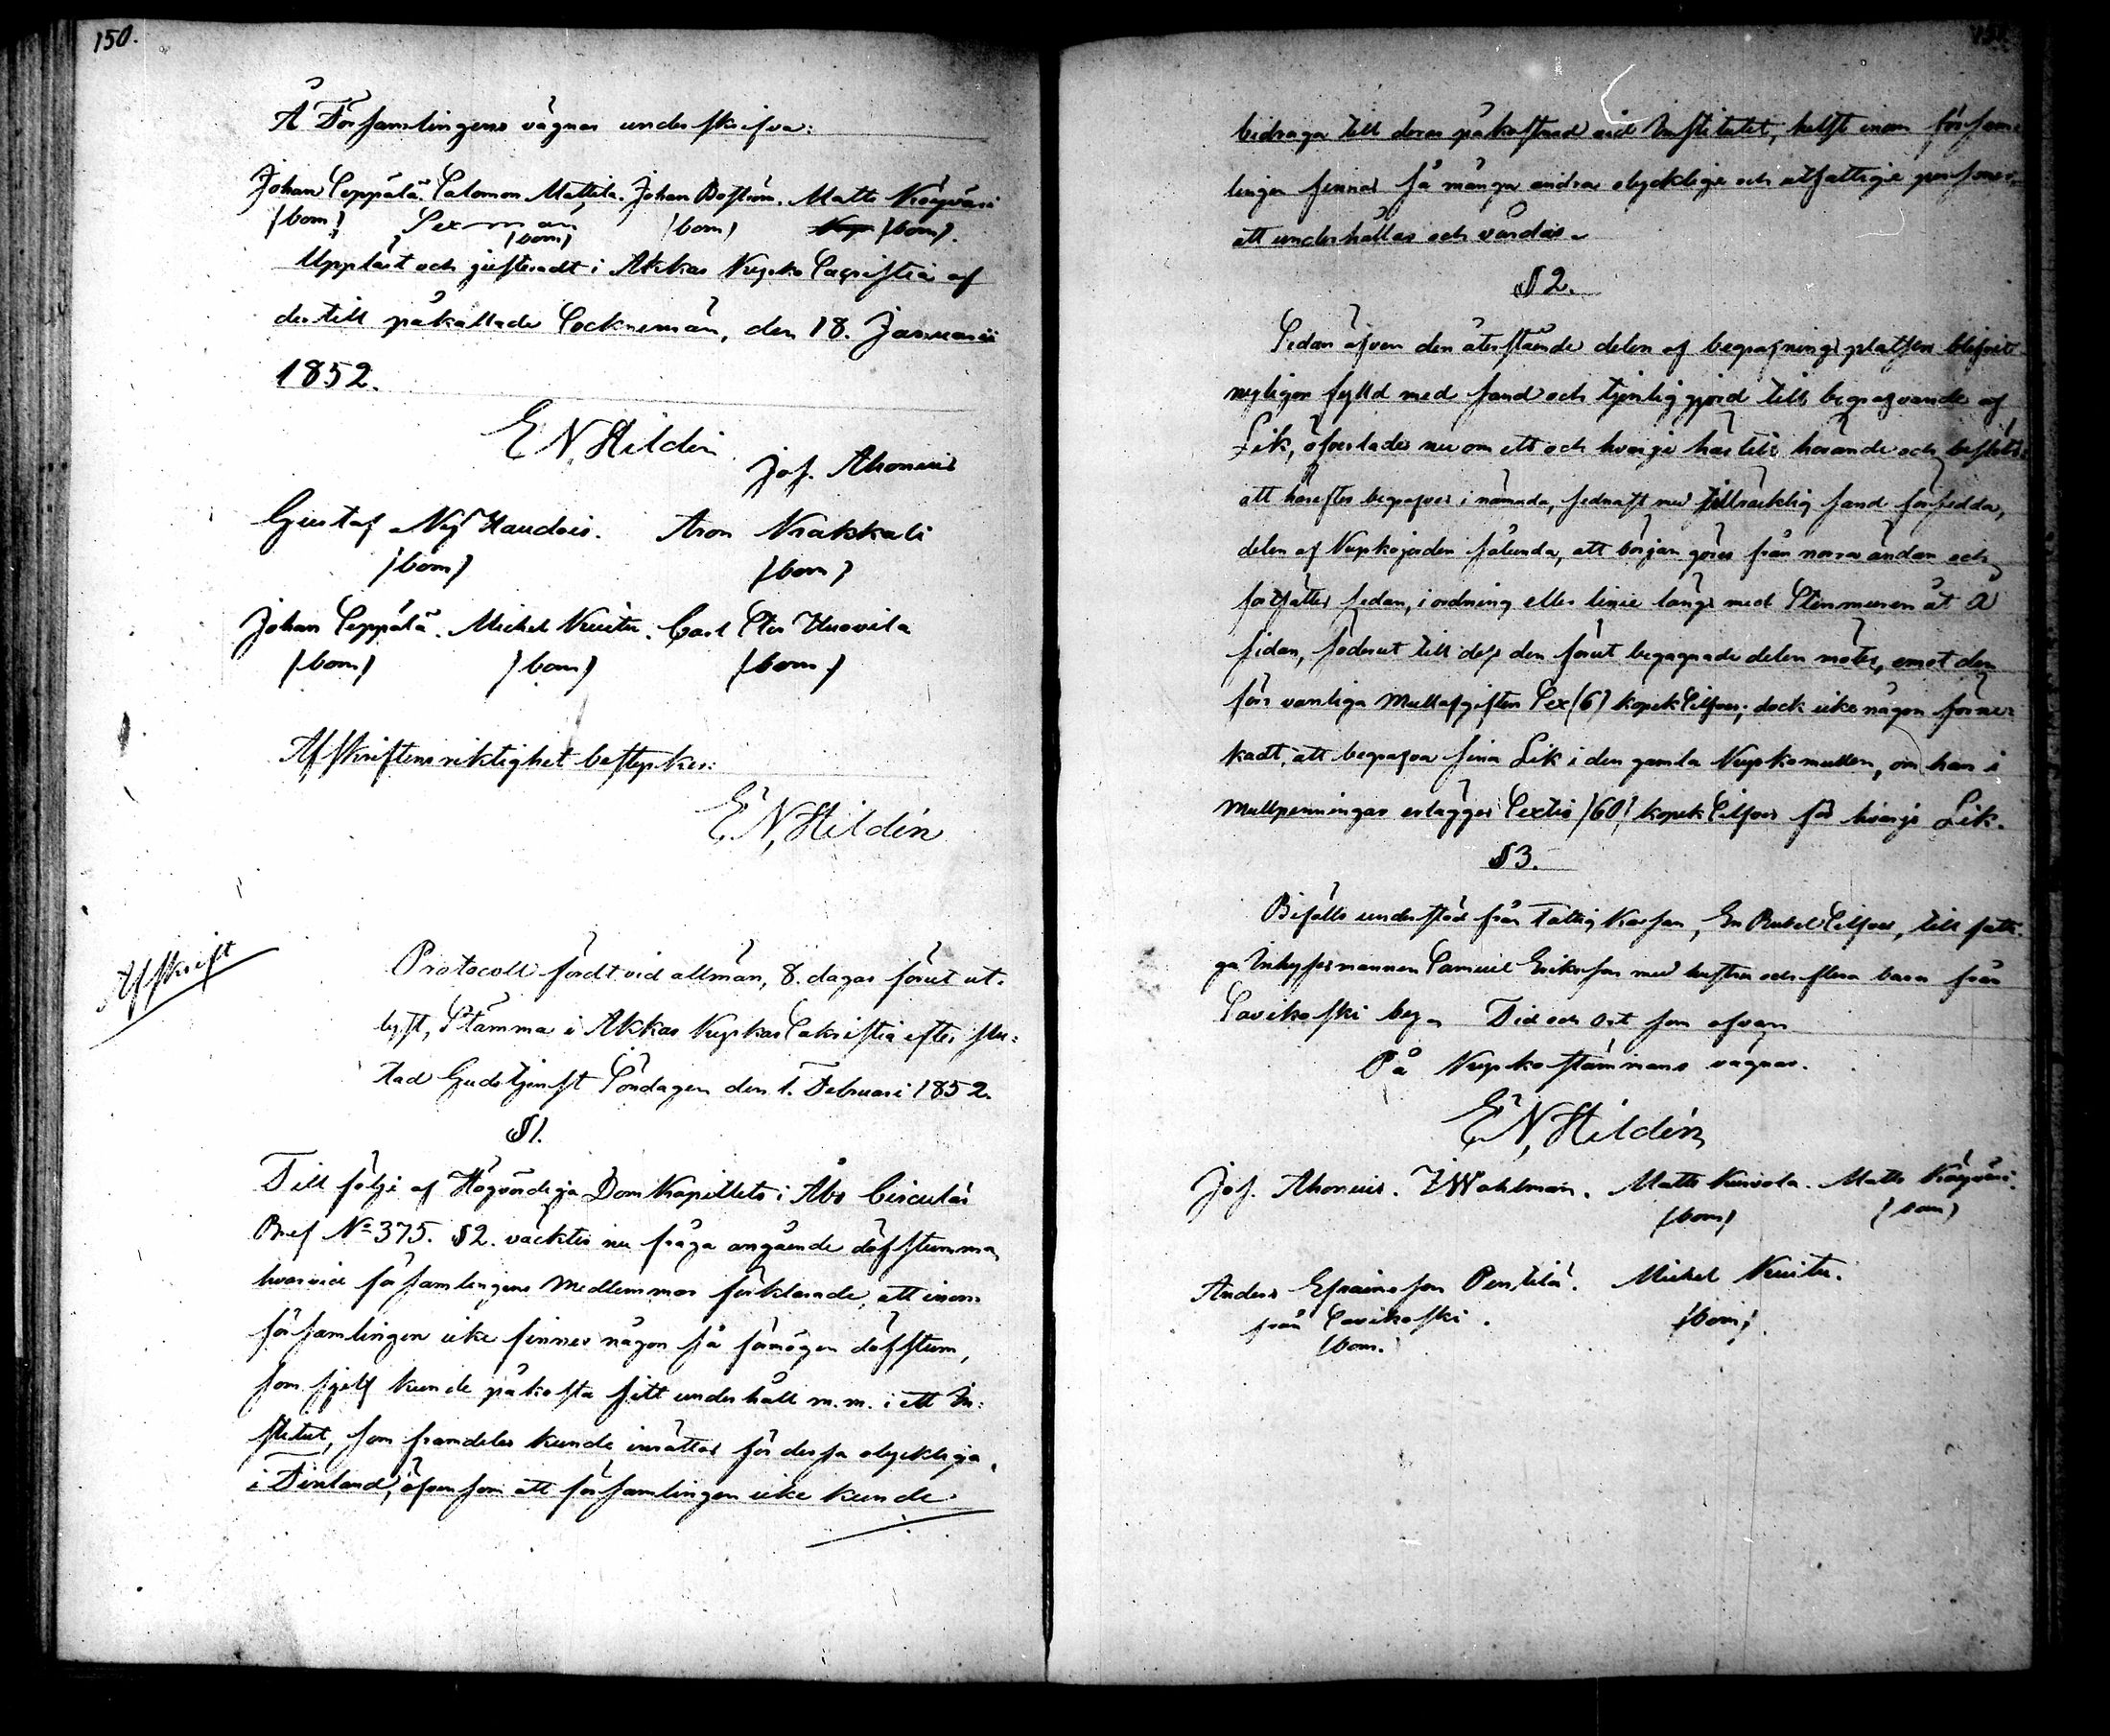 150.
Å Församlingens vägnar underskrifva:
Johan Seppälä. Salomon Mattila. Johan Boström. Matts Köyväri
(bom) Sexman (bom) (bom) (bom).
Uppläst och justeradt i Akkas Kyrko Sacristia af
dertill påkallade Sockneman, den 18. Januarii
1852.
E N, Hildén
Jos. Ahonius
Gustaf Nÿ Haudois. Aron Krakkali
(bom) (bom)
Johan Seppälä. Michel Kuitu. Carl Huovila
(bom) (bom) (bom)
Afskriftens riktighet bestyrker:
E, N, Hildén
Afskrift
Protocoll fördt vid allmän, 8. dagar förut ut-
lyst, Stämma i Akkas Kyrkas Sakristia efter slu-
tad Gudstjenst Söndagen den 1. Februari 1852.
§1.
Till följe af Högvördiga DomKapitlets i Åbo Circulär
Bref No 375. §2. väcktes nu fråga angående döfstumma
hvarvid församlingens Medlemmar förklarade, att inom
församlingen icke finnes någon så förmögen döfstum,
som sjelf kunde påkosta sitt underhåll m.m. i ett In-
stitut, som framdeles kunde inrättas för dessa olyckliga
i Finland, äfvensom att församlingen icke kunde
bidraga till deras påkostnad vid Institutet, helst inom försam-
lingen finnas så många andra olycklige och utfattige personer,
att underhållas och vårdas.
§2.
Sedan äfven den återstående delen af begrafningsplatsen blifvit
nyligen fylld med sand och tjenlig gjord till begrafvande af
Lik, öfverlades nu om ett och hvarje härtill hörande och beslöts:
att härefter begrafves i nämnda, sednast med tillräcklig sand försedda,
delen af Kyrkojorden sålunda, att början göres från norra ändan och
fortsättes sedan, i ordning eller linie längs med Stenmuren åt Å
sidan, söderut till dess den förut begagnade delen mötes, emot den
för vanliga Mullafgiften Sex (6) kopek Silfver; dock icke någon förme-
kadt, att begrafva sina Lik i den gamla Kyrkomullen, om han i
Mullpenningar erlägger Sextio (60) kopek Silfver för hvarje Lik.
§3.
Bifölls understöd från Fattig Kassan, En Rubel Silfver, till fatti-
ga Inhysesmannen Samuel Eriksson med hustru och flera barn från
Savikoski by. Tid och Ort som ofvan
På Kyrkostämmans vägnar.
E, N, Hildén
Jos. Ahonius. J W Wahlman. Matts Kuivola. Matts Köyväri.
(bom) (bom)
Anders Efraimsson Penttilä. Michel Kuitu.
från Savikoski. (bom)
(bom.